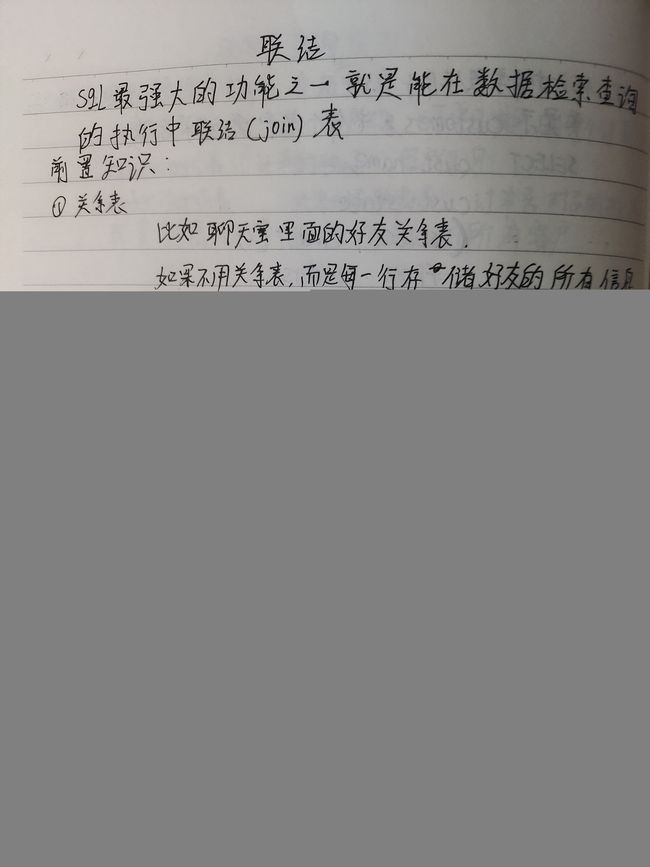 联结
SQL最强大的功能之一就是能在数据检索查询
的执行中联结(join)表
前置知识:
① 关系表
比如聊天室里面的好友关系表.
如果不用关系表,而是每一行存储好友的所有信息